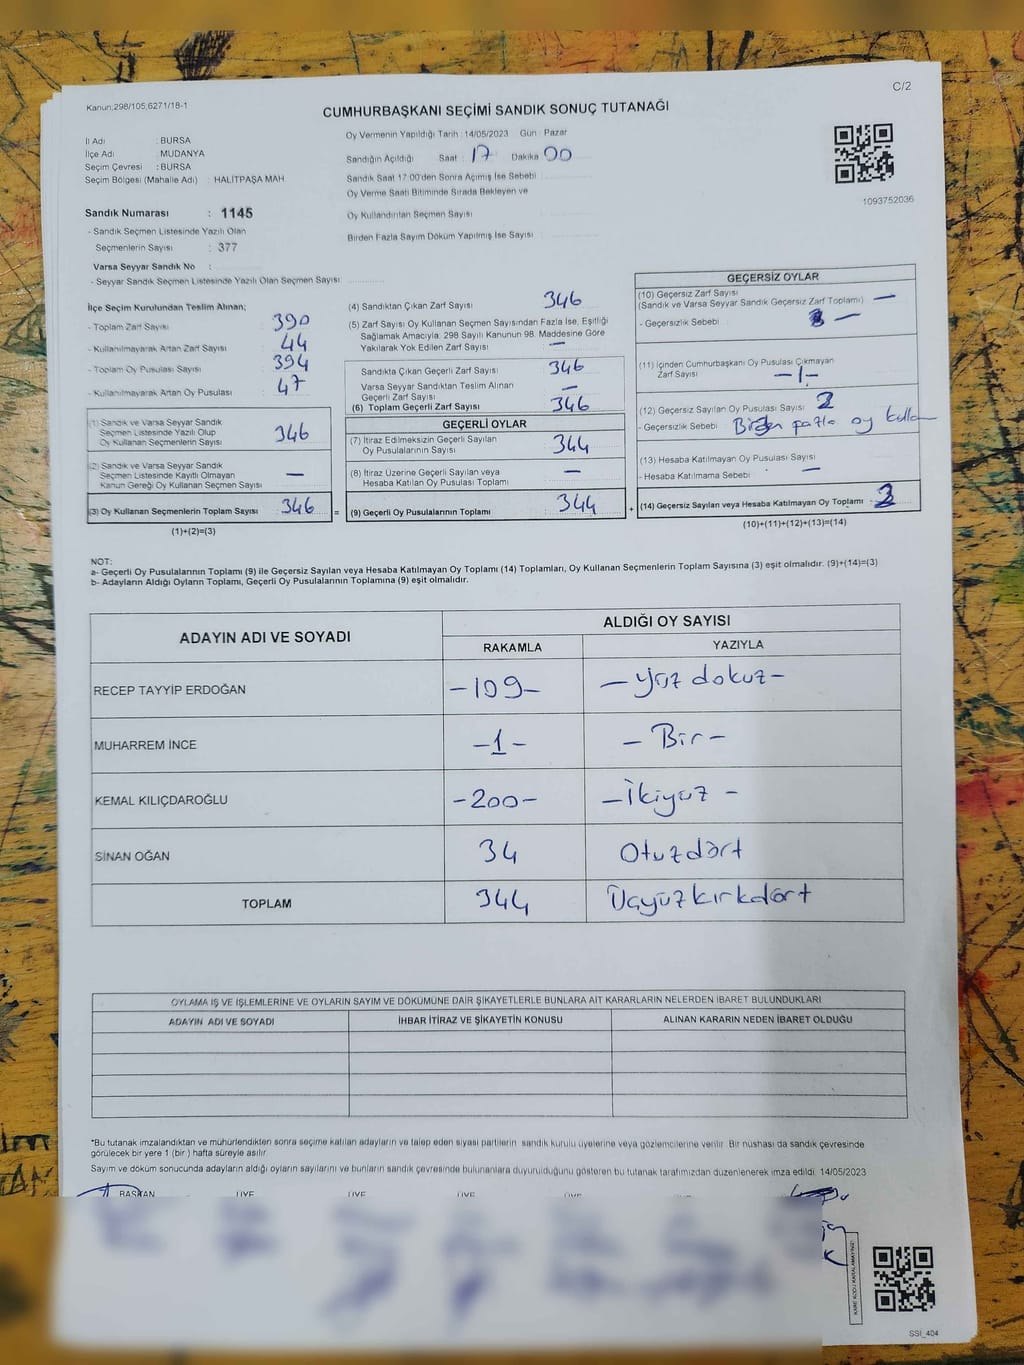 C/2
Kanun:298/105,6271/18-1
CUMHURBAŞKANI SEÇİMİ SANDIK SONUÇ TUTANAĞI
İl Adı : BURSA
İlçe Adı : MUDANYA
Seçim Çevresi : BURSA
Seçim Bölgesi (Mahalle Adı) : HALİTPAŞA MAH
Sandık Numarası : 1145
- Sandık Seçmen Listesinde Yazılı Olan
Seçmenlerin Sayısı : 377
Varsa Seyyar Sandık No :
- Seyyar Sandık Seçmen Listesinde Yazılı Olan Seçmen Sayısı :
Oy Vermenin Yapıldığı Tarih : 14/05/2023 Gün : Pazar
Sandığın Açıldığı Saat : 17 Dakika 00
Sandık Saat 17:00'den Sonra Açılmış İse Sebebi :
Oy Verme Saati Bitiminde Sırada Bekleyen ve
Oy Kullandırılan Seçmen Sayısı :
Birden Fazla Sayım Döküm Yapılmış İse Sayısı :
1093752036
İlçe Seçim Kurulundan Teslim Alınan;
- Toplam Zarf Sayısı : 390
- Kullanılmayarak Artan Zarf Sayısı : 44
- Toplam Oy Pusulası Sayısı : 394
- Kullanılmayarak Artan Oy Pusulası : 47
(1) Sandık ve Varsa Seyyar Sandık
Seçmen Listesinde Yazılı Olup
Oy Kullanan Seçmenlerin Sayısı : 346
(2) Sandık ve Varsa Seyyar Sandık
Seçmen Listesinde Kayıtlı Olmayan
Kanun Gereği Oy Kullanan Seçmen Sayısı : —
(3) Oy Kullanan Seçmenlerin Toplam Sayısı : 346 =
(1)+(2)=(3)
(4) Sandıktan Çıkan Zarf Sayısı : 346
(5) Zarf Sayısı Oy Kullanan Seçmen Sayısından Fazla İse, Eşitliği
Sağlamak Amacıyla; 298 Sayılı Kanunun 98. Maddesine Göre
Yakılarak Yok Edilen Zarf Sayısı : —
Sandıkta Çıkan Geçerli Zarf Sayısı : 346
Varsa Seyyar Sandıktan Teslim Alınan
Geçerli Zarf Sayısı : —
(6) Toplam Geçerli Zarf Sayısı : 346
GEÇERLİ OYLAR
(7) İtiraz Edilmeksizin Geçerli Sayılan
Oy Pusulalarının Sayısı : 344
(8) İtiraz Üzerine Geçerli Sayılan veya
Hesaba Katılan Oy Pusulası Toplamı : —
(9) Geçerli Oy Pusulalarının Toplamı : 344 +
GEÇERSİZ OYLAR
(10) Geçersiz Zarf Sayısı
(Sandık ve Varsa Seyyar Sandık Geçersiz Zarf Toplamı) : —
- Geçersizlik Sebebi : —
(11) İçinden Cumhurbaşkanı Oy Pusulası Çıkmayan
Zarf Sayısı : —1—
(12) Geçersiz Sayılan Oy Pusulası Sayısı :
- Geçersizlik Sebebi : Birden fazla oy kullan
(13) Hesaba Katılmayan Oy Pusulası Sayısı :
- Hesaba Katılmama Sebebi : —
(14) Geçersiz Sayılan veya Hesaba Katılmayan Oy Toplamı :
(10)+(11)+(12)+(13)=(14)
NOT:
a- Geçerli Oy Pusulalarının Toplamı (9) ile Geçersiz Sayılan veya Hesaba Katılmayan Oy Toplamı (14) Toplamları, Oy Kullanan Seçmenlerin Toplam Sayısına (3) eşit olmalıdır. (9)+(14)=(3)
b- Adayların Aldığı Oyların Toplamı, Geçerli Oy Pusulalarının Toplamına (9) eşit olmalıdır.
ADAYIN ADI VE SOYADI ALDIĞI OY SAYISI
RAKAMLA YAZIYLA
RECEP TAYYİP ERDOĞAN -109- -yüz dokuz-
MUHARREM İNCE -1- -Bir-
KEMAL KILIÇDAROĞLU -200- -İkiyüz-
SİNAN OĞAN 34 Otuzdört
TOPLAM 344 Üçyüzkırkdört
OYLAMA İŞ VE İŞLEMLERİNE VE OYLARIN SAYIM VE DÖKÜMÜNE DAİR ŞİKAYETLERLE BUNLARA AİT KARARLARIN NELERDEN İBARET BULUNDUKLARI
ADAYIN ADI VE SOYADI İHBAR İTİRAZ VE ŞİKAYETİN KONUSU ALINAN KARARIN NEDEN İBARET OLDUĞU
*Bu tutanak imzalandıktan ve mühürlendikten sonra seçime katılan adayların ve talep eden siyasi partilerin sandık kurulu üyelerine veya gözlemcilerine verilir. Bir nüshası da sandık çevresinde
görülecek bir yere 1 (bir) hafta süreyle asılır.
Sayım ve döküm sonucunda adayların aldığı oyların sayılarını ve bunların sandık çevresinde bulunanlara duyurulduğunu gösteren bu tutanak tarafımızdan düzenlenerek imza edildi. 14/05/2023
BAŞKAN ÜYE ÜYE ÜYE ÜYE
KARE KODU KARALAMAYINIZ!
SSİ_404